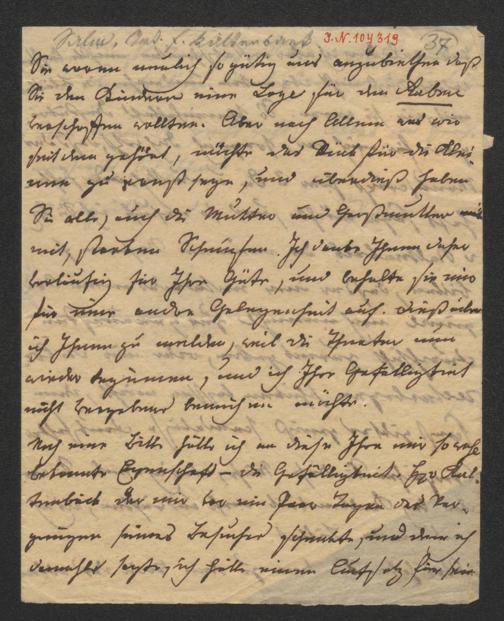 I.N. 104319 37
Sie waren neulich so gütig uns anzubiethen daß
Sie den Kindern eine Loge für den Raben
verschaffen wollten. Aber nach Allem was wir
seitdem gehört, möchte das Stück für die Klei-
nen zu ernst seyn, und überdieß haben
Sie alle, auch die Mutter und Großmutter
mit, starken Schnupfen. Ich danke Ihnen daher
vorläufig für Ihre Güte, und behalte sie mir
für eine andre Gelegenheit auf. Dieß eile
ich Ihnen zu melden, weil die Theater nun
wieder beginnen, und ich Ihre Gefälligkeit
nicht vergebens bemühen möchte.
Noch eine Bitte hätte ich an diese Ihre mir so wohl
bekannte Eigenschaft – die Gefälligkeit. Hr. Kal-
tenbäck der mir vor ein paar Tagen das Ver-
gnügen seines Besuches schenkte, und dem ich
damahls sagte, ich hätte einen Aufsatz für sein